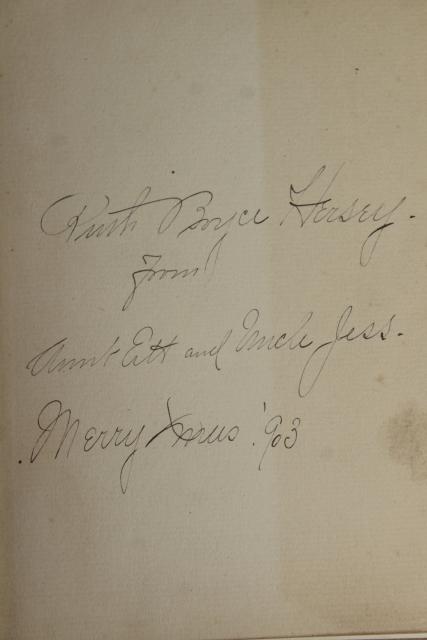 Ruth Boyce Hersey.
from
Aunt Ett and Uncle Jess.
Merry Xmas '03